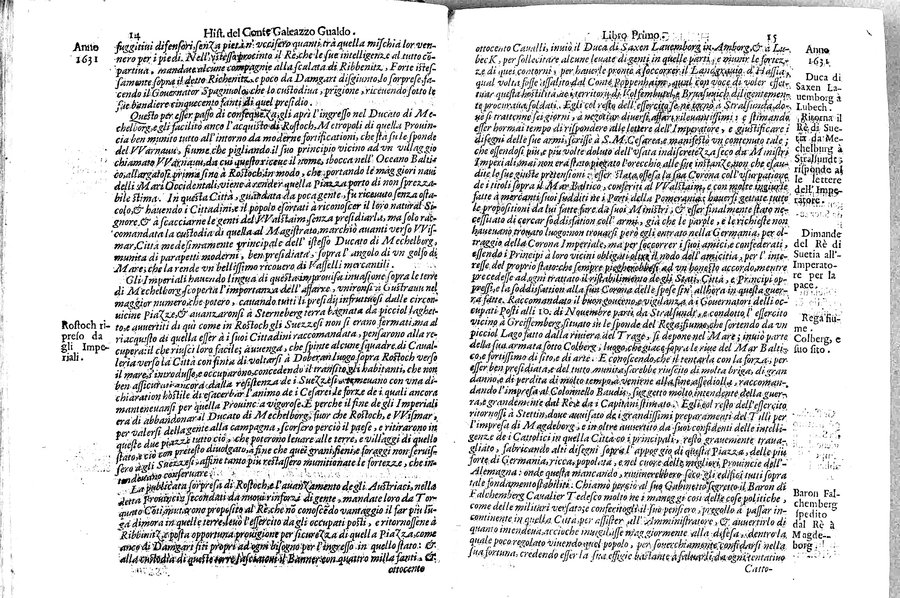 14 Hist. del Conte Galeazzo Gualdo.
Anno
1631
fuggitivi difensori, senza pietà n'uccisero quanti trà quella mischia lor vennero
per i piedi. Nell'istesso procinto il Rè, che le sue intelligenze al tutto compartiua,
mandate alcune compagnie alla scalata di Ribbenitz, Forte
sopra il detto Richenitz, e poco da Damgart disgiunto, lo sorprese, facendo
il Governator Spagnuolo, che lo custodiua, prigione, ricevendo sotto le
sue bandiere cinquecento fanti di quel presidio.
Questo per esser passo di conseguenza, gli aprì l'ingresso nel Ducato di Mechelborg,
e gli facilitò anco l'acquisto di Rostoch, Metropoli di quella Prouincia
ben munita tutto all'intorno da moderne fortificationi, che sta sù le sponde
del VVarnau, fiume, che pigliando il suo principio vicino ad vn villaggio
chiamato VVarnau, da cui questo riceue il nome, sbocca nell'Oceano Baltico,
allargatosi prima sino à Rostoch in modo, che portando le maggiori naui
delli Mari Occidentali, viene à render quella Piazza porto di non sprezzabile
stima. In questa Città, guardata da poca gente, fù riceuuto senza ostacolo,
& hauendo i Cittadini, e'l popolo esortati à riconoscer il loro natural Signore,
& à scacciarne le genti del VValstaim, senza presidiarla, ma solo raccomandata
la custodia di quella al Magistrato, marchiò auanti verso VVismar,
Città medesimamente principale dell'istesso Ducato di Mechelborg,
munita di parapetti moderni, ben presidiata, sopra l'angolo di vn golfo di
Mare, che la rende vn bellissimo ricouero di Vasselli mercantili.
Gli Imperiali hauendo lingua di questa improuisa inuasione, sopra le terre
di Mechelborg, scoperta l'importanza dell'affare, vnironsi à Gustraun nel
maggior numero, che potero, cauando tutti li presidij infruttuosi dalle circonuicine
Piazze, & auanzaronsi à Sterneberg terra bagnata da picciol laghetto,
e auuertiti di quì come in Rostoch gli Suezzesi non si erano fermati, ma al
riacquisto di quella esser à i suoi Cittadini raccomandata, pensarono alla ricupera:
il che riuscì loro facile; auuenga, che spinte alcune squadre di Caualleria
verso la Città con finta di voltarsi à Dobéran luogo sopra Rostoch verso
il mare, s'introdusse, & occuparono, concedendo il transito gli habitanti, che non
ben assicurati ancora dalla resistenza de i Suezzesi, temeuano con vna dichiaration
hostile di esacerbar l'animo de i Cesarei, le forze de i quali ancora
manteneuansi per quella Prouincia vigorose. E perche il fine degli Imperiali
era di abbandonar il Ducato di Mechelborg, fuor che Rostoch, e VVismar,
per valersi della gente alla campagna, scorsero perciò il paese, e ritirarono in
queste due Piazze tutto ciò, che poterono leuare alle terre, e villaggi di quello
stato, e ciò con pretesto diuolgato, à fine che quei grani, fieni, e foraggi non seruissero
agli Suezzesi, affine tanto più restassero munitionate le fortezze, che intendeuano
conseruare.
La publicata sorpresa di Rostoch, e l'auanzamento degli Austriaci, nella
detta Prouincia secondati da nuoui rinforzi di gente, mandate loro da Torquato
Conti, mutarono proposito al Rè, che non conoscendo vantaggio il far più lunga
dimora in quelle terre, leuò l'essercito da gli occupati posti, e ritornossene à
Ribbnitz, e posta opportuna prouigione per sicurezza di quella Piazza, come
anco di Damgart siti propri ad ogni bisogno per l'ingresso in quello stato: &
alla custodia di quelle terre lasciatoui il Banner con quattro milla fanti, &
ottocento
Rostoch ripreso
da
gli Imperiali.
Libro Primo. 15
ottocento Cavalli, inuiò il Duca di Saxen Lauemborg in Amborg, & à Lubeck,
per sollecitare alcune leuate di genti in quelle parti, e vnir le forze
di quei contorni, per hauerle pronte à soccorrer il Langrauio d'Hassia,
qual volta fosse assalito dal Conte Poppenhaim, qual con voce di voler essercitar
questa hostilità, ne i territorij di VVolfembutel, e Brunsuich, diligentemente
procuraua soldati. Egli col resto dell'essercito se ne tornò à Stralsunda, doue
si trattenne sei giorni, à negotiar diuersi affari rileuantissimi; e stimando
esser hormai tempo di rispondere alle lettere dell'Imperatore, e giustificare i
disegni delle sue armi, scrisse à S.M. Cesarea, e manifestò vn contenuto tale;
che essendosi più, e più volte doluto dell'usata indiscretezza seco da Ministri
Imperiali, mai non era stato piegato l'orecchio alle sue instanze, non che esaudite
lo sue giuste pretensioni: esser stata offesa la sua Corona coll'vsurpatione
de i titoli sopra il Mar Baltico, conferiti al VValstaim, e con molte ingiurie
fatte à mercanti suoi sudditi ne i Porti della Pomerania; hauersi gettate tutte
le propositioni da lui fatte fare da suoi Ministri; & esser finalmente stato necessitato
di cercar sodisfattion coll'armi, già che le parole, e le richieste non
haueuano trouato luogo: non trouarsi però egli entrato nella Germania, per oltraggio
della Corona Imperiale, ma per soccorrer i suoi amici, e confederati,
essendo i Principi à loro vicini obligati oltre il nodo dell'amicitia, per l'interesse
del proprio stato: che sempre piegherebbesi ad vn honesto accordo, mentre
precedesse ad ogni trattato la restitutione occupata à gli Stati, Città, e Principi oppressi,
e la sodisfattion alla sua Corona delle spese sin'allhora in questa guerra
fatte. Raccomandato il buon gouerno, e vigilanza à i Gouernatori delli occupati
Posti alli 10. di Nouembre partì da Stralsundt, e condotto l'essercito
vicino à Greiffemberg, situato in le sponde del Rega fiume, che sortendo da vn
picciol Lago fatto dalla riuiera del Trago, si depone nel Mare; inuiò parte
della sua armata sotto Colberg, luogo, che giace sopra le riue del Mar Baltico,
e fortissimo di sito, e di arte. E conoscendo, che il tentarla con la forza, per
esser ben presidiata, e del tutto munita, sarebbe riuscito di molta briga, di gran
danno, e di perdita di molto tempo, à venirne alla fine, assediolla, raccomandando
l'impresa al Colonnello Baudis, suggetto molto intendente della guerra,
e grandemente dal Rè da i Capitani stimato. Egli col resto dell'essercito
ritornossi à Stettin, doue auuisato de i grandissimi preparamenti del Tilli per
l'impresa di Magdeborg, e in oltre auuertito da suoi confidenti delle intelligenze
de i Cattolici in quella Città co i principali, restò grauemente trauagliato,
fabricando alti disegni sopra l'appoggio di questa Piazza, delle più
forte di Germania, ricca, popolata, e nel cuore delle migliori Prouincie dell'
Alemagna: onde questa mancando, ruinerebbero seco gli edificij tutti sopra
tale fondamento stabiliti. Chiamò perciò al suo Gabinetto segretto il Baron di
Falchemberg Caualier Tedesco molto ne i maneggi così delle cose politiche,
come delle militari versato: e confertogli il suo pensiero, pregollo à passar incontinente
in quella Città, per assister all'Amministratore, & auuertirlo di
quanto intendeua, accioche inuigilasse maggiormente alla difesa, dentro la
quale poco regolato viuendo quel popolo, per souerchiamente confidarsi nella
sua fortuna, credendo esser la sua effigie bastante à saluarli, da ogni tentatiuo
Catto-
Anno
1631.
Duca di
Saxen Lauemborg
à
Lubech.
Ritorna il
Rè di Suetia
da Mechelburg
à
Stralsundt:
risponde al
le lettere
dell'Imperatore.
Dimande
del Rè di
Suetia all'
Imperatore
per la
pace.
Rega fiume.
Colberg, e
suo sito.
Baron Falchemberg
spedito
dal Rè à
Magdeborg.